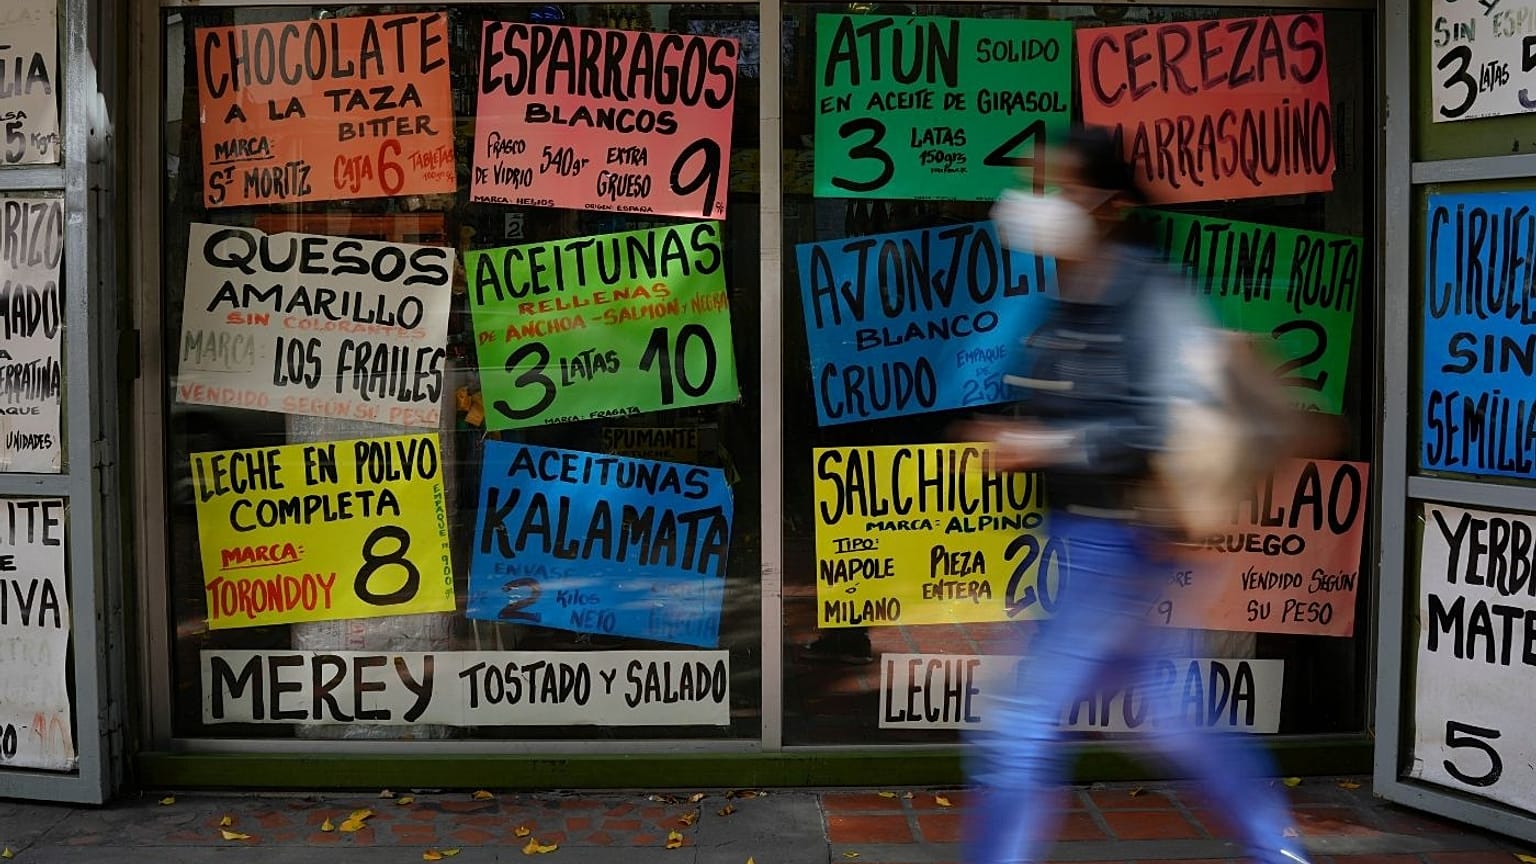 5 Kgrs
UNIDADES
CHOCOLATE
A LA TAZA
BITTER
MARCA:
ST MORITZ
CAJA 6 TABLETAS
ESPARRAGOS
BLANCOS
FRASCO
DE VIDRIO
540gr
EXTRA
GRUESO
9
MARCA: HELIOS
ORIGEN: ESPAÑA
QUESOS
AMARILLO
SIN COLORANTES
MARCA: LOS FRAILES
VENDIDO SEGÚN SU PESO
ACEITUNAS
RELLENAS
DE ANCHOA - SALMÓN Y NEGRA
3 LATAS 10
MARCA: FRAGATA
LECHE EN POLVO
COMPLETA
MARCA:
TORONDOY
8
SPUMANTE
ACEITUNAS
KALAMATA
ENVASE
DE 2 KILOS
NETO
MEREY TOSTADO Y SALADO
ATÚN SOLIDO
EN ACEITE DE GIRASOL
3 LATAS 4
150grs
CEREZAS
MARRASQUINO
AJONJOLI
BLANCO
CRUDO
EMPAQUE
DE
250
ROJA
2
SALCHICHON
MARCA: ALPINO
TIPO:
NAPOLE
Ó
MILANO
PIEZA
ENTERA
20
VENDIDO SEGÚN
SU PESO
LECHE
SIN
3 LATAS 5
SIN
YERBA
MATE
5